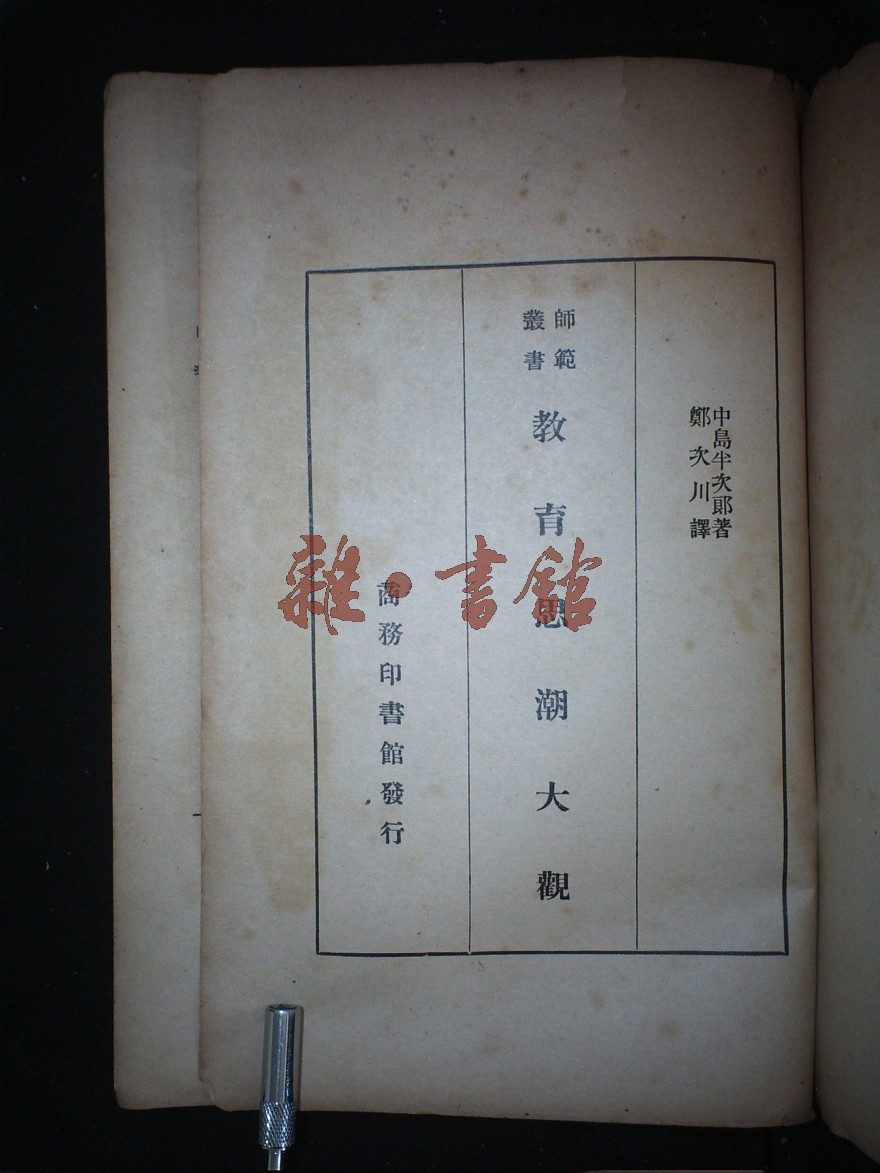 中島半次郎著
鄭次川譯
師範
叢書
教育思潮大觀
商務印書館發行
雜·書館